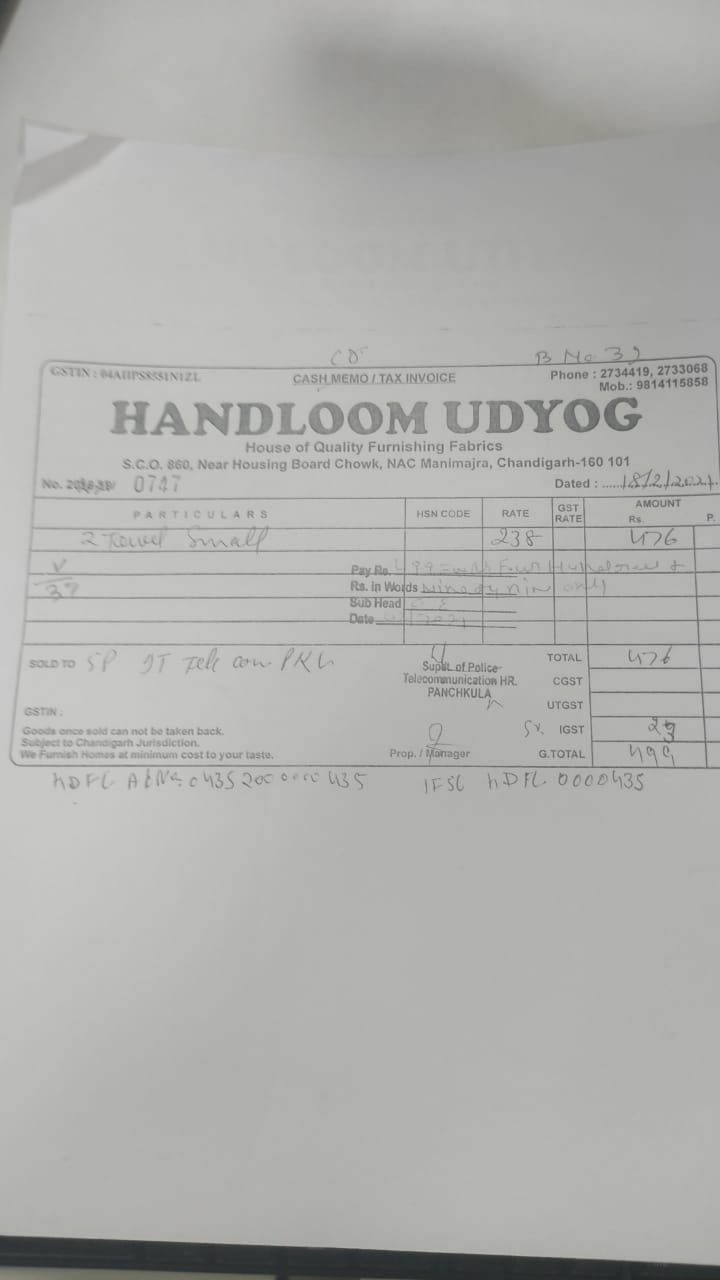 B No 39
CASH MEMO / TAX INVOICE
Phone : 2734419, 2733068
Mob.: 9814115858
HANDLOOM UDYOG
House of Quality Furnishing Fabrics
S.C.O. 860, Near Housing Board Chowk, NAC Manimajra, Chandigarh-160 101
No. 0747
Dated : 18/2/2021
PARTICULARS HSN CODE RATE GST RATE AMOUNT Rs. P.
2 Towel Small 238 476
Pay Rs. 499 Four Hundred &
Rs. in Words Ninety nine only
Sub Head
Date
SOLD TO SP IT Tele PKL
Supdt. of Police
Telecommunication HR.
PANCHKULA
TOTAL 476
CGST
UTGST
GSTIN :
5%. IGST 23
Goods once sold can not be taken back.
Subject to Chandigarh Jurisdiction.
We Furnish Homes at minimum cost to your taste.
Prop. / Manager
G.TOTAL 499
HDFC A/c No. IFSC HDFC 0000435